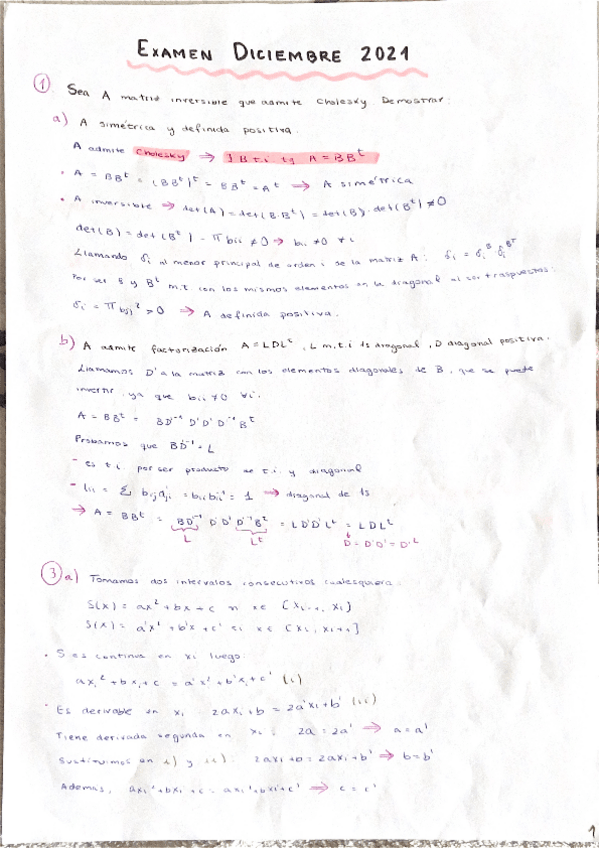 EXAMEN DICIEMBRE 2021
① Sea A matriz inversible que admite Cholesky Demostrar:
a) A simétrica y definida positiva.
A admite Cholesky ⇒ ∃ B t.i tq A = BB^t
• A = BB^t = (BB^t)^t = BB^t = A^t ⇒ A simétrica
• A inversible → det(A) = det(B·B^t) = det(B)·det(B^t) ≠ 0
det(B) = det(B^t) = π bii ≠ 0 → bii ≠ 0 ∀i
Llamando δi al menor principal de orden i de la matriz A: δi = δi^B · δi^B^T
Por ser B y B^t m.t con los mismos elementos en la diagonal al ser traspuestas:
δi = π bjj² > 0 ⇒ A definida positiva.
b) A admite factorización A = LDL^t, L m.t.i 1s diagonal, D diagonal positiva.
Llamamos D' a la matriz con los elementos diagonales de B, que se puede
invertir, ya que bii ≠ 0 ∀i.
A = BB^t = BD'⁻¹ D'D'D'⁻¹B^t
Probamos que BD'⁻¹ = L
- es t.i. por ser producto de t.i. y diagonal
- lii = Σ bij dji = bii bii⁻¹ = 1 ⇒ diagonal de 1s
⇒ A = BB^t = BD'⁻¹ D'D' D'⁻¹B^t = LD'D'L^t = LDL^t
L L^t D = D'D' = D'²
③ a) Tomamos dos intervalos consecutivos cualesquiera:
S(x) = ax² + bx + c si x ∈ [xi-1, xi]
S(x) = a'x² + b'x + c' si x ∈ [xi, xi+1]
• S es continua en xi luego:
axi² + bxi + c = a'xi² + b'xi + c' (i)
• Es derivable en xi: 2axi + b = 2a'xi + b' (ii)
Tiene derivada segunda en xi: 2a = 2a' ⇒ a = a'
Sustituimos en i) y ii): 2axi + b = 2axi + b' ⇒ b = b'
Además, axi² + bxi + c = axi² + bxi + c' ⇒ c = c'
1